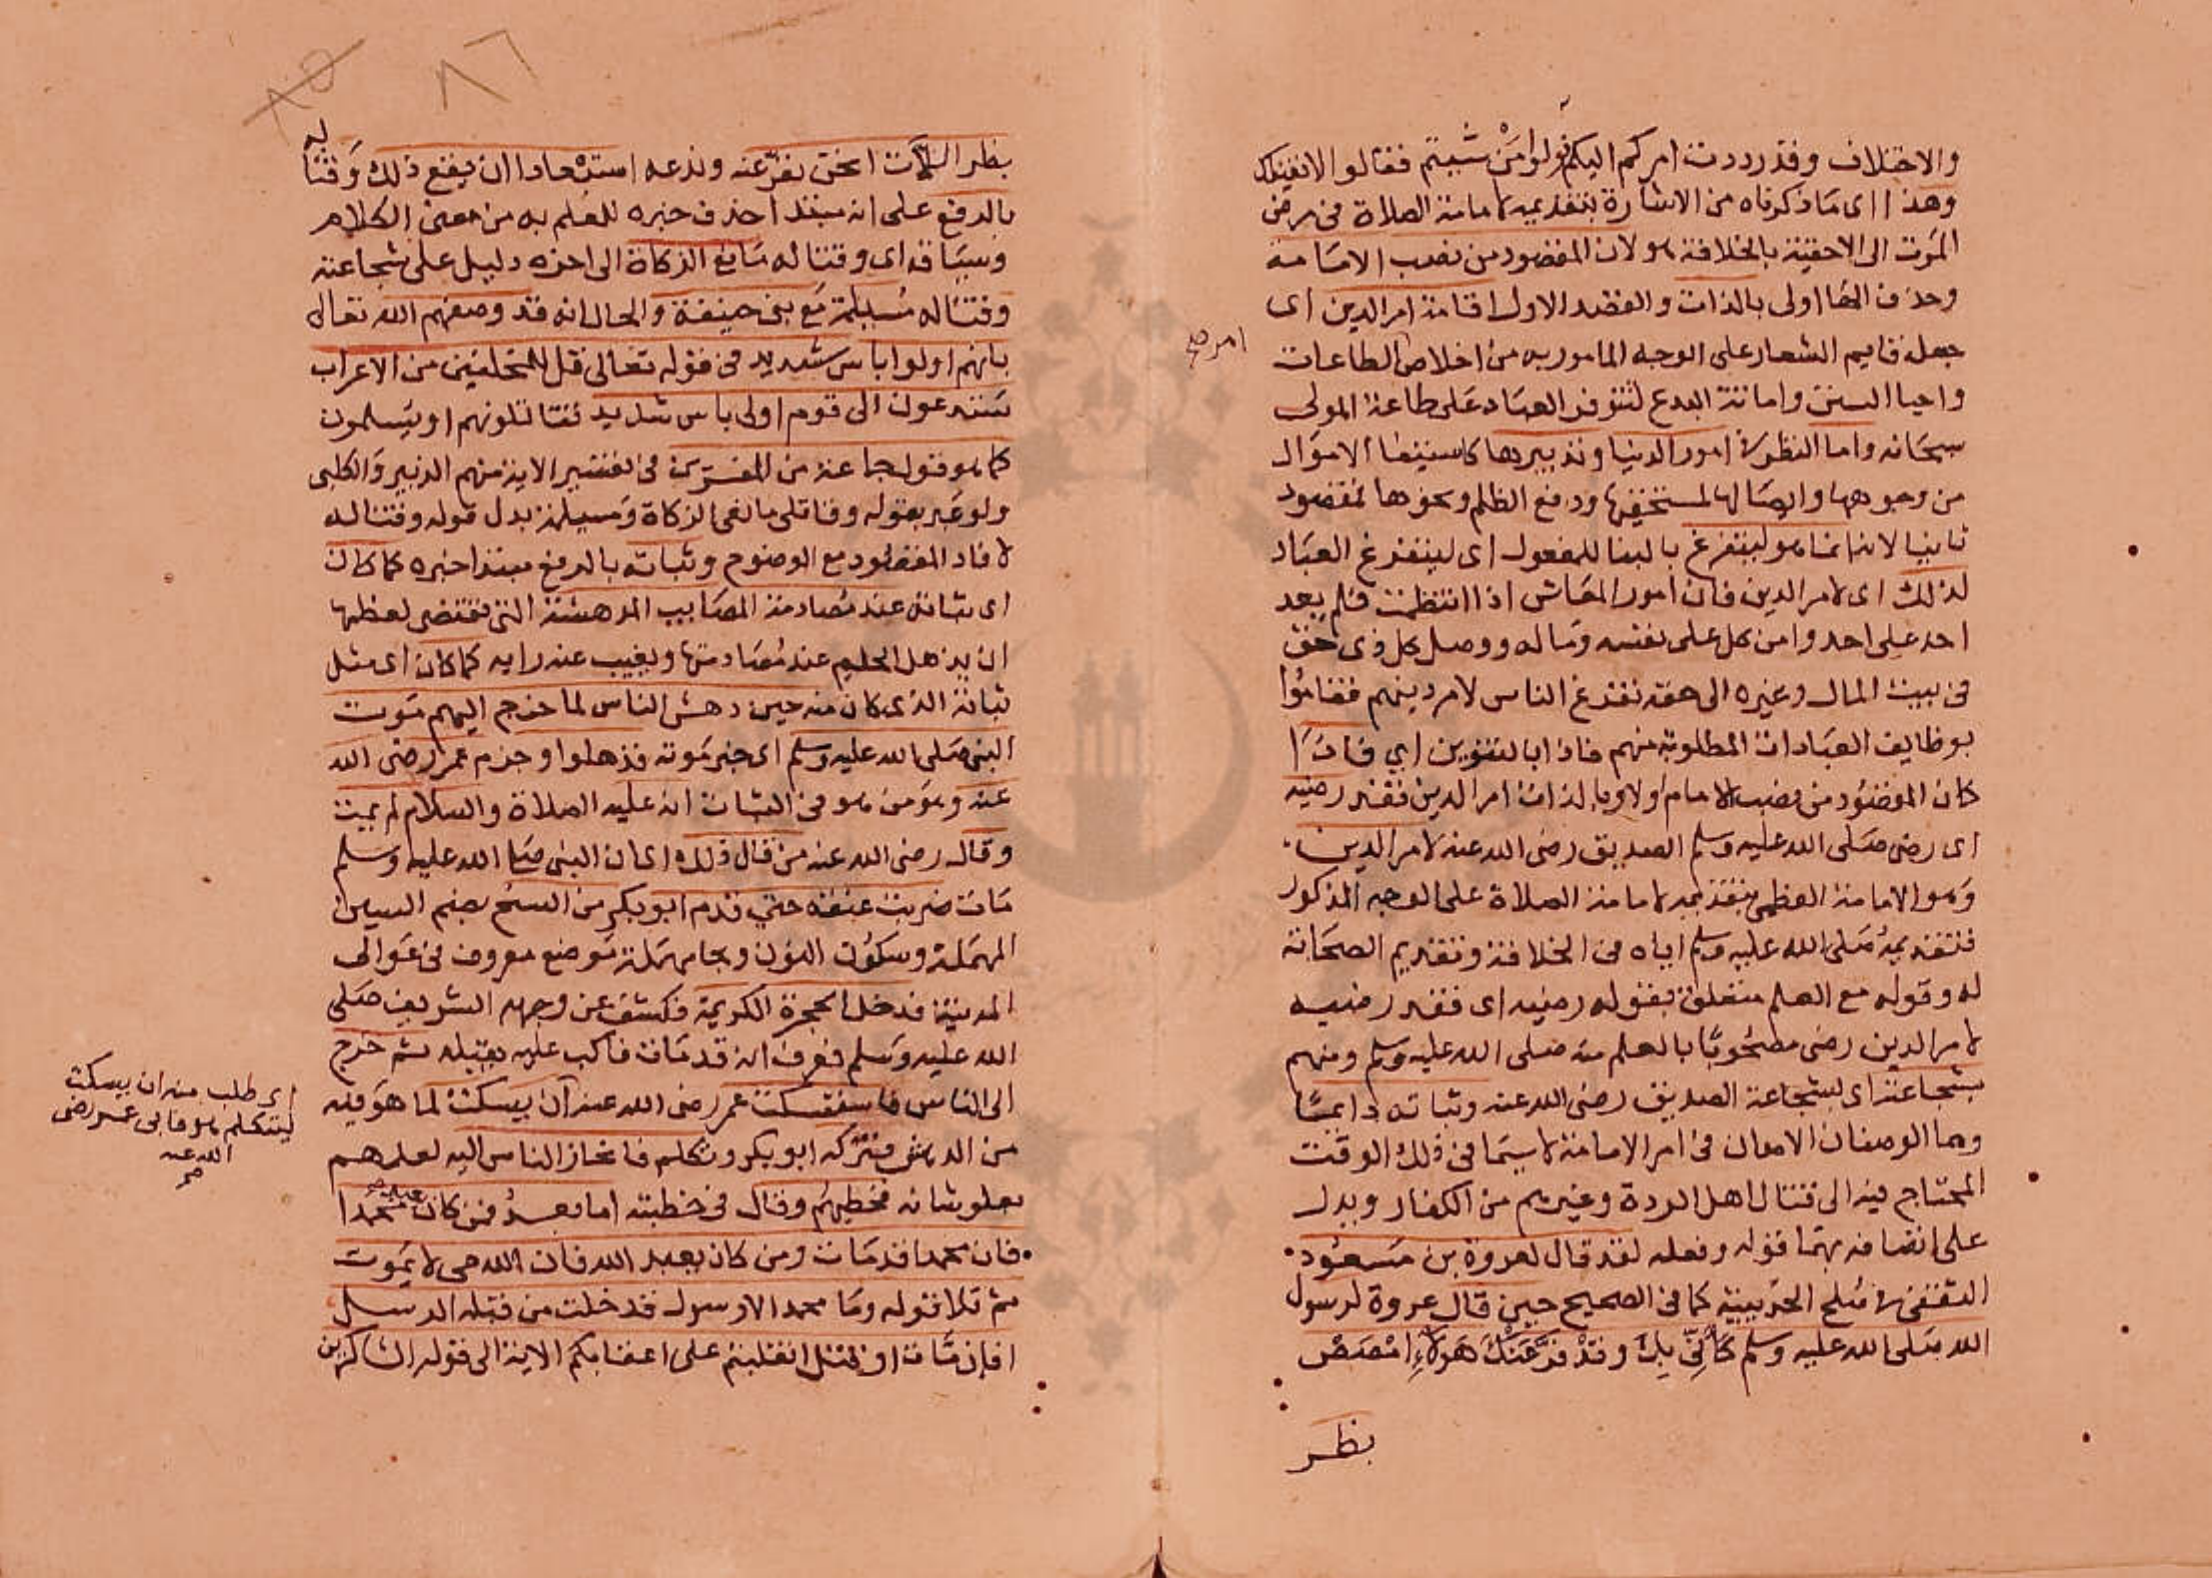 والاختلاف وقد رددت امركم اليكم تولوا من شيتم فقالوا الا نقيلك
وهذا اى ما ذكرناه من الاشارة بتقديمه لامامة الصلاة فى مرض
الموت الى الاحقية بالخلافة هو لان المقصود من نصب الامامة
وحذف الفا اولى بالذات والقصد الاول اقامة امر الدين اى
جعله قايم الشعار على الوجه المامور به من اخلاص الطاعات
واحيا السنن واماتة البدع لتتوفر العباد على طاعة المولى
سبحانه واما النظر فى امور الدنيا وتدبيرها كاستيفا الاموال
من وجوهها وايصالها لمستحقيها ودفع الظلم ونحوها فمقصود
ثانيا لانه انما هو ليتفرغ بالبنا للمفعول اى ليتفرغ العباد
لذلك اى لامر الدين فان امور المعاش اذا انتظمت فلم يعد
احد على احد وامن كل على نفسه وماله ووصل كل ذى حق
فى بيت المال وغيره الى حقه تفرغ الناس لامر دينهم فقاموا
بوظايف العبادات المطلوبة منهم فاذا بالتنوين اي فاذا
كان المقصود من نصب الامام اولا وبالذات امر الدين فقد رضيه
اى رضى صلى الله عليه وسلم الصديق رضى الله عنه لامر الدين
وهو الامامة العظمى بتقديمه لامامة الصلاة على الوجه المذكور
فتقديمه صلى الله عليه وسلم اياه فى الخلافة وتقديم الصحابة
له وقوله مع العلم متعلق بقوله رضيه اى فقد رضيه
لامر الدين رضى مصحوبا بالعلم منه صلى الله عليه وسلم ومنهم
بشجاعته اى بشجاعة الصديق رضى الله عنه وثباته دايما
وهما الوصفان الاهمان فى امر الامامة لا سيما فى ذلك الوقت
المحتاج فيه الى قتال اهل الردة وغيرهم من الكفار ويدل
على اتصافه بهما قوله وفعله لقد قال لعروة بن مسعود
الثقفى فى صلح الحديبية كما فى الصحيح حين قال عروة لرسول
الله صلى الله عليه وسلم كأنى بك وقد فر عنك هؤلاء امصص
بظر
امر صح
بظر اللات انحن نفر عنه وندعه استبعادا ان يقع ذلك وقتاله
بالرفع على انه مبتدا حذف خبره للعلم به من معنى الكلام
وسياقه اى وقتاله مانع الزكاة الى اخره دليل على شجاعته
وقتاله مسيلمة مع بنى حنيفة والحال انه قد وصفهم الله تعالى
بانهم اولوا باس شديد فى قوله تعالى قل للمخلفين من الاعراب
ستدعون الى قوم اولى باس شديد تقاتلونهم او يسلمون
كما هو قول جماعة من المفسرين فى تفسير الاية منهم الزبير والكلبى
ولو عبر بقوله وقاتل مانعى الزكاة ومسيلمة بدل قوله وقتاله
لافاد المقصود مع الوضوح وثباته بالرفع مبتدا خبره كما كان
اى ثباته عند مصادمة المصايب المدهشة التى تقتضى لعظمها
ان يذهل الحليم عند مصادمتها ويغيب عنه رايه كما كان اى مثل
ثباته الذى كان منه حين دهش الناس لما خرج اليهم موت
النبى صلى الله عليه وسلم اى خبر موته فذهلوا وجزم عمر رضى الله
عنه وهو من هو فى الثبات انه عليه الصلاة والسلام لم يمت
وقال رضى الله عنه من قال ذلك اى ان النبى صلى الله عليه وسلم
مات ضربت عنقه حتى قدم ابو بكر من السنح بضم السين
المهملة وسكون النون وبحا مهملة موضع معروف فى عوالى
المدينة فدخل الحجرة الكريمة فكشف عن وجهه الشريف صلى
الله عليه وسلم فعرف انه قد مات فاكب عليه يقبله ثم خرج
الى الناس فاستسكت عمر رضى الله عنه ان يسكت لما هو فيه
من الدهش فتركه ابو بكر وتكلم فانحاز الناس اليه لعلمهم
بعلو شانه فخطبهم وقال فى خطبته اما بعد فمن كان يعبد محمدا
فان محمدا قد مات ومن كان يعبد الله فان الله حى لا يموت
ثم تلا قوله وما محمد الا رسول قد خلت من قبله الرسل
افإن مات او قتل انقلبتم على اعقابكم الاية الى قوله الشاكرين
اى طلب منه ان يسكت
ليتكلم هو فابى عمر رضى
الله عنه
صح
٨٥
٨٦